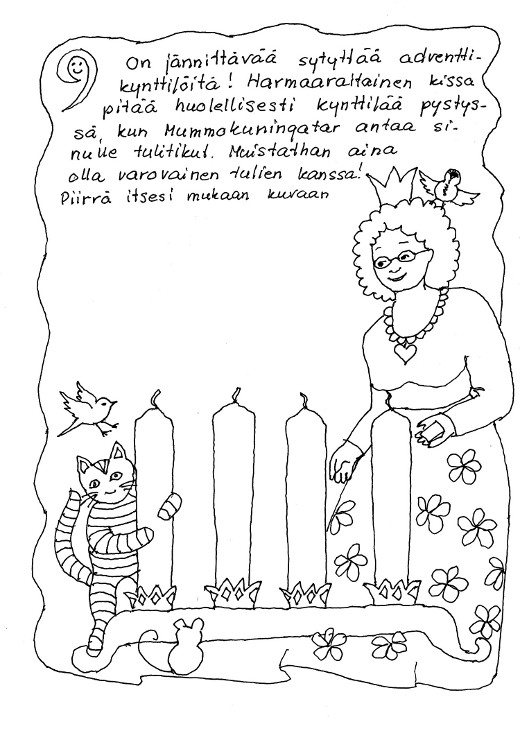 9 On jännittävää sytyttää adventti-
kynttilöitä! Harmaaraitainen kissa
pitää huolellisesti kynttilää pystys-
sä, kun Mummokuningatar antaa si-
nulle tulitikut. Muistathan aina
olla varovainen tulien kanssa!
Piirrä itsesi mukaan kuvaan